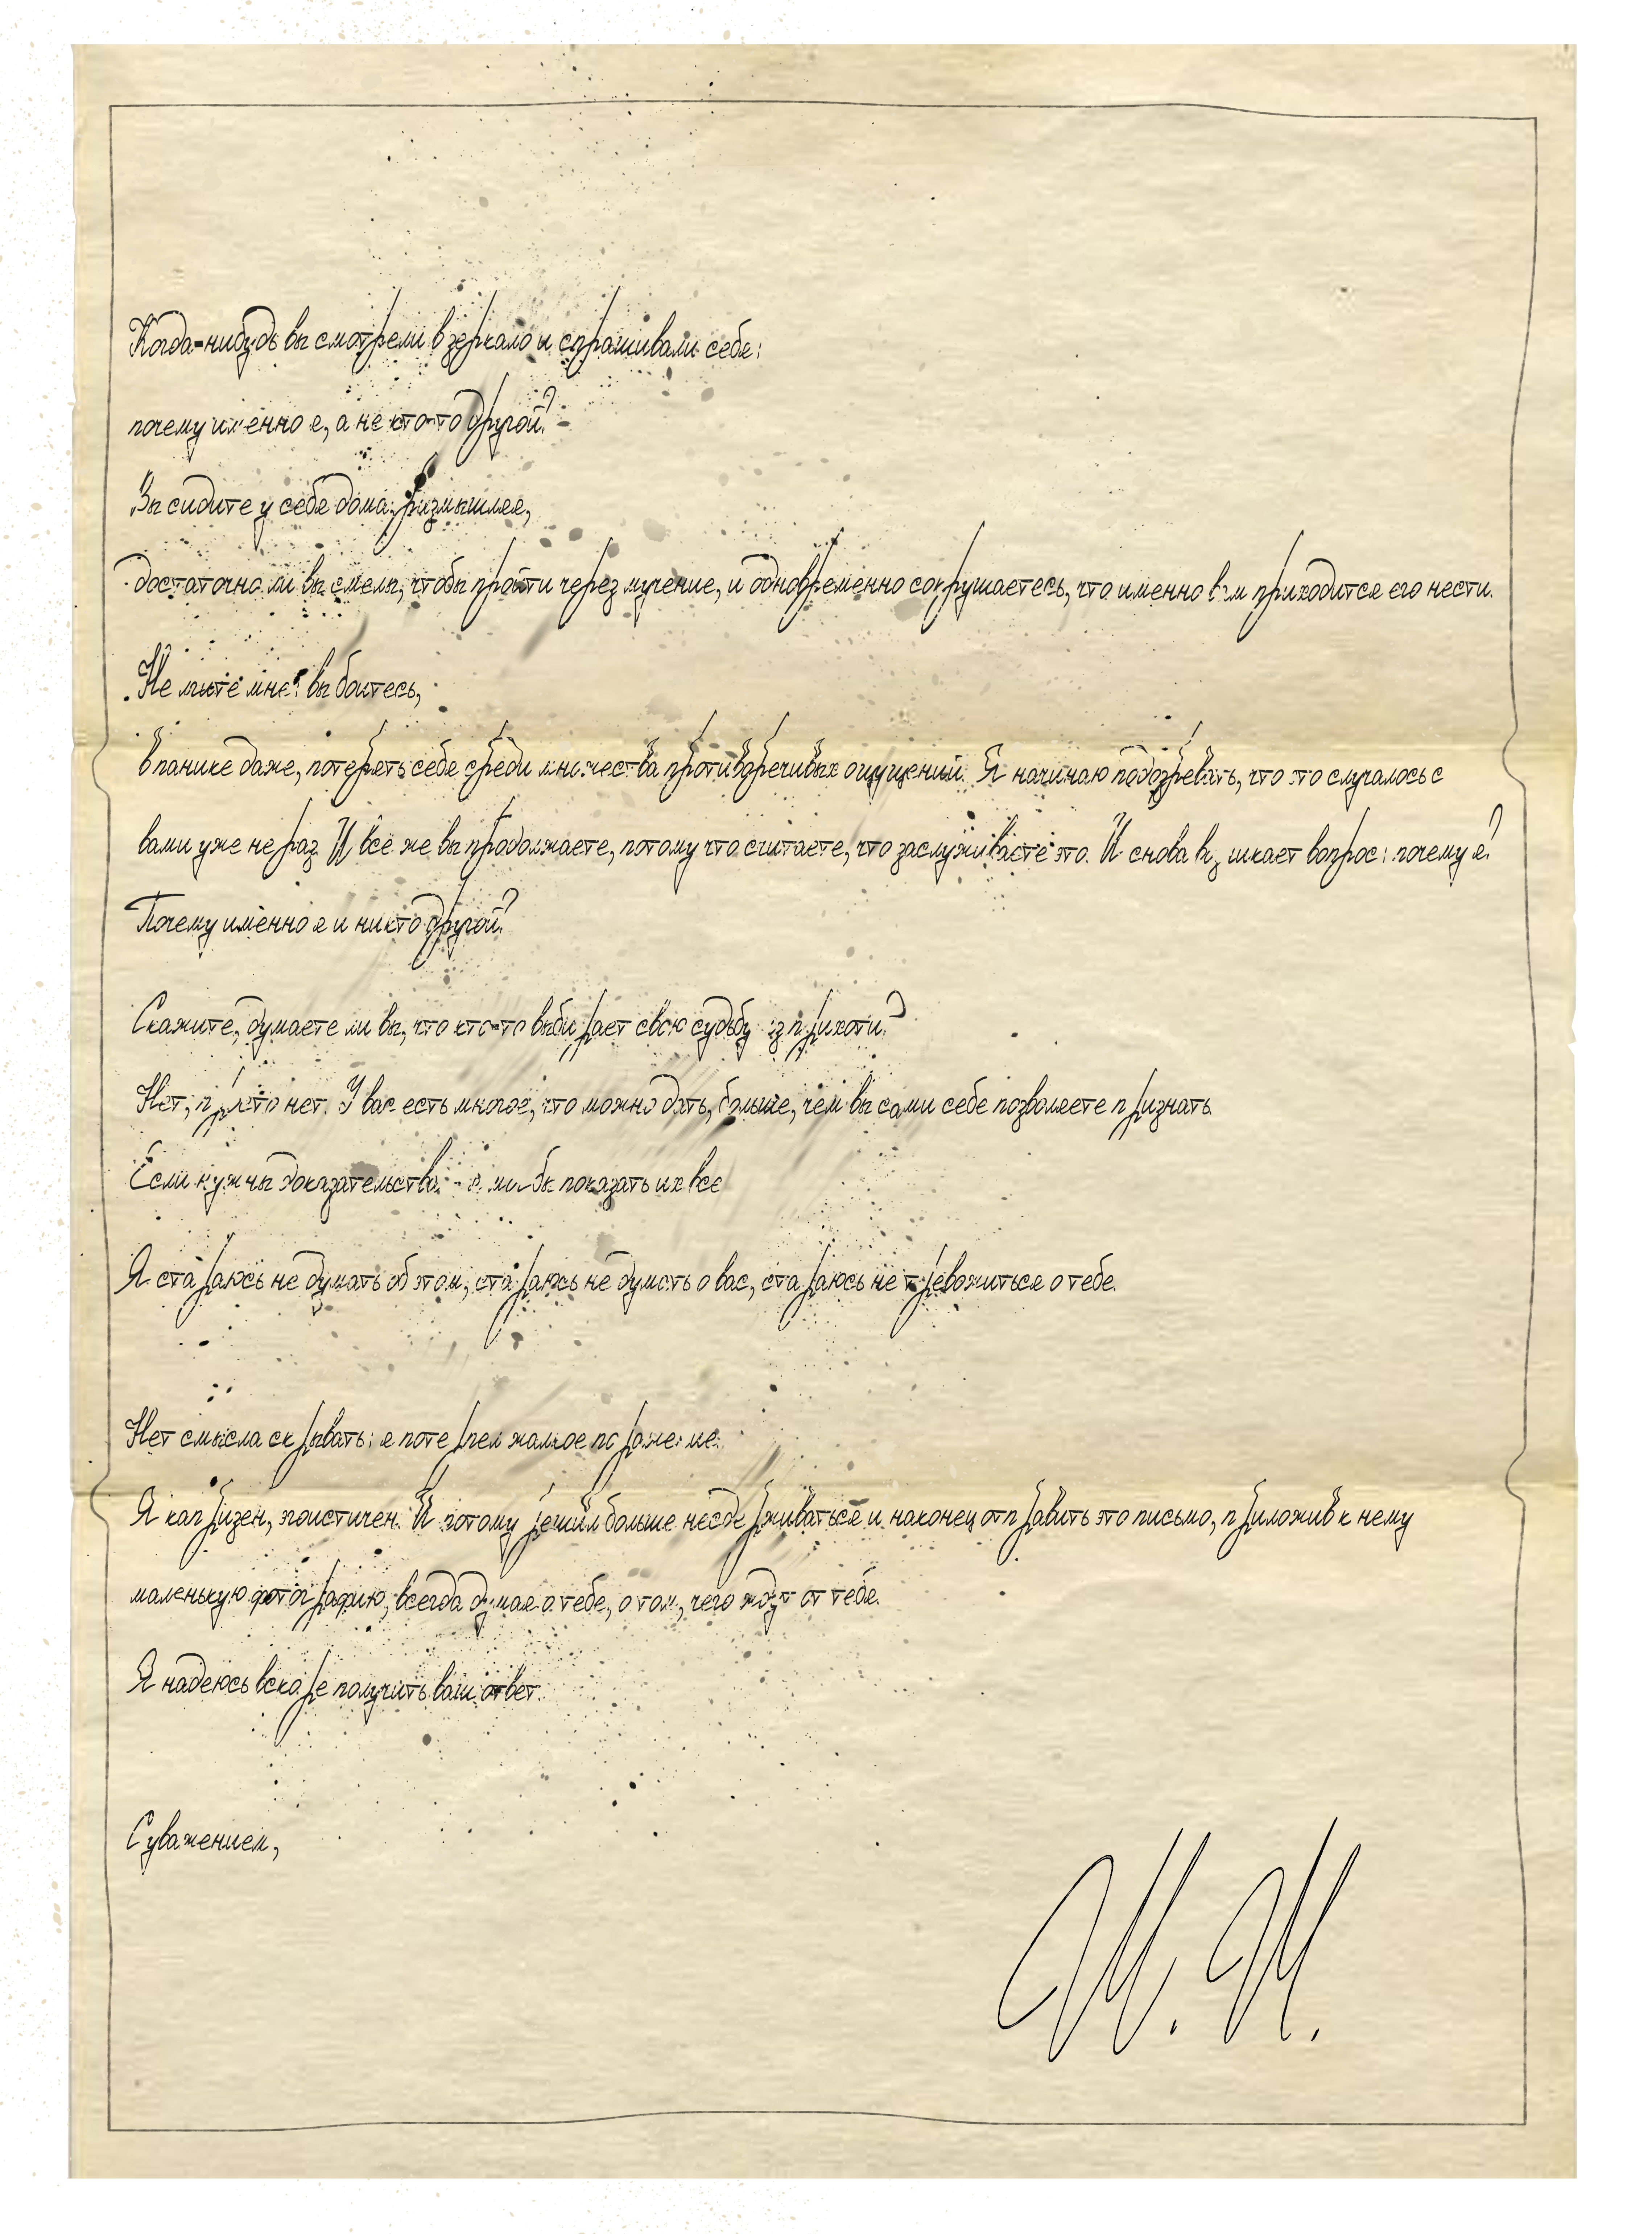 Когда-нибудь вы смотрели в зеркало и спрашивали себя:
почему именно я, а не кто-то другой?
Вы сидите у себя дома, размышляя,
достаточно ли вы смелы, чтобы пройти через мучение, и одновременно сокрушаетесь, что именно вам приходится его нести.
Не лгите мне: вы боитесь,
в панике даже, потерять себя среди множества противоречивых ощущений. Я начинаю подозревать, что это случалось с
вами уже не раз. И всё же вы продолжаете, потому что считаете, что заслуживаете это. И снова возникает вопрос: почему я?
Почему именно я и никто другой?
Скажите, думаете ли вы, что кто-то выбирает свою судьбу из прихоти?
Нет, просто нет. У вас есть многое, что можно дать, больше, чем вы сами себе позволяете признать.
Если нужны доказательства, бы показать их все
Я стараюсь не думать об этом, стараюсь не думать о вас, стараюсь не тревожиться о тебе.
Нет смысла скрывать: я потерпел жалкое поражение.
Я капризен, эгоистичен. И потому решил больше не сдерживаться и наконец отправить это письмо, приложив к нему
маленькую фотографию, всегда думая о тебе, о том, чего ждут от тебя.
Я надеюсь вскоре получить ваш ответ.
С уважением,